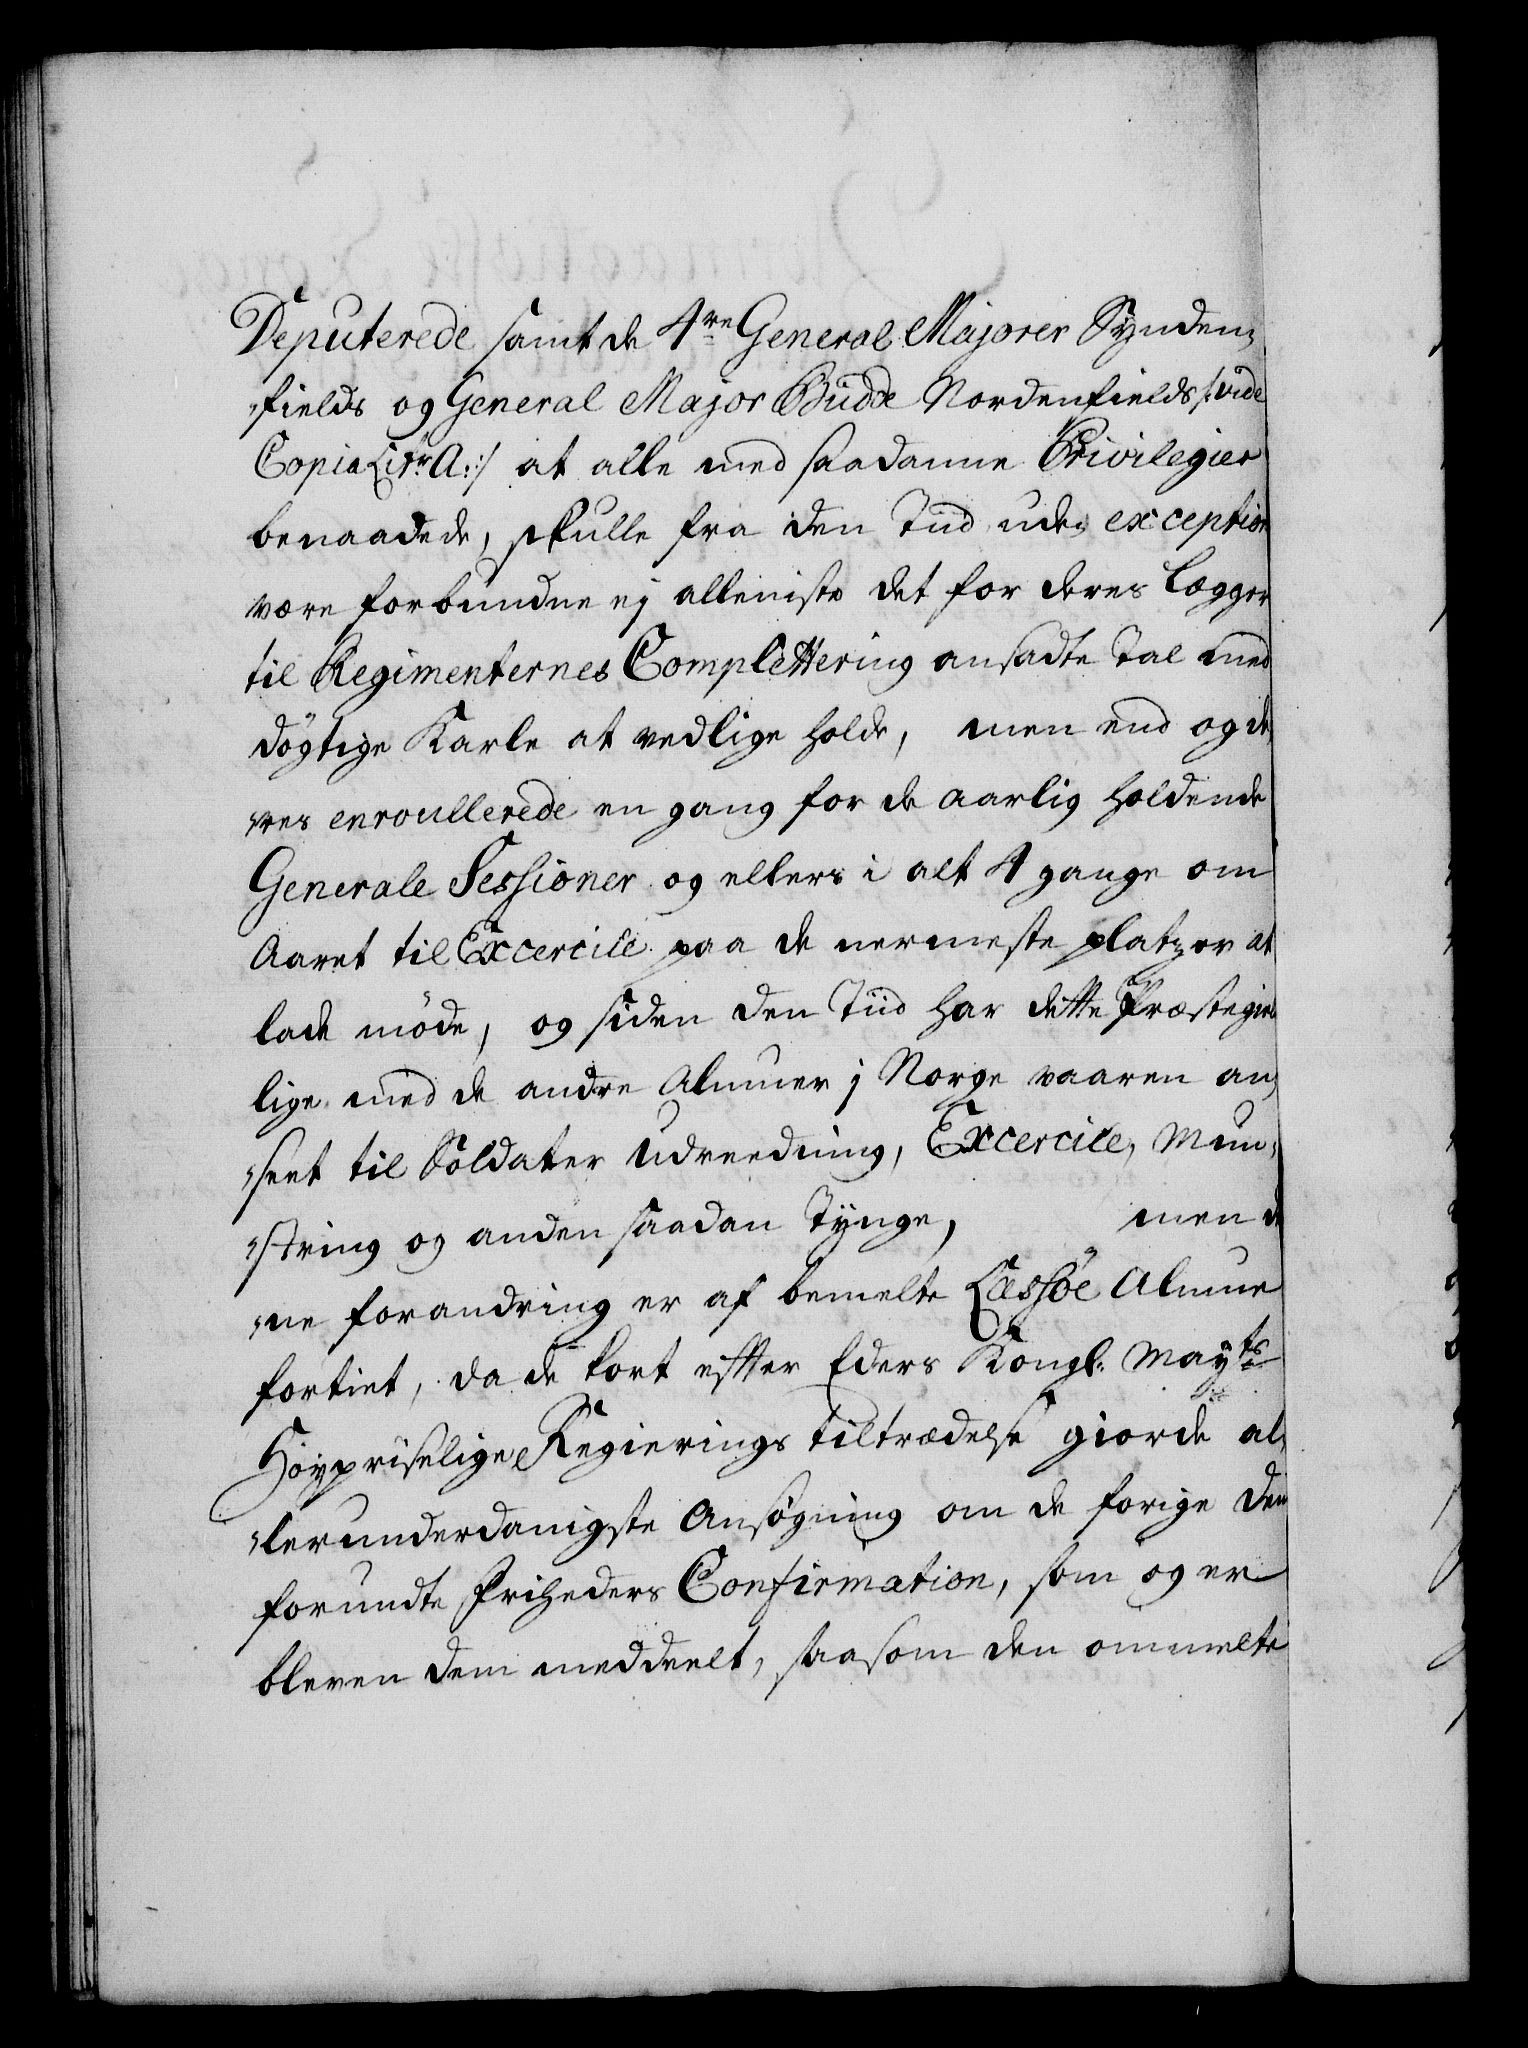 Deputerede samt de 4re General Majorer Synden-
„fields og General Major Budde Nordenfields /: vide
Copia Litr A: :/ at alle med saadanne Privilegier
benaadede, skulle fra den Tiid uden exception
være forbundne ej alleniste det for deres Lægger
til Regimenternes Complettering ansadte Tal med
dögtige Karle at vedlige holde, men end og de
„res enroullerede en gang for de aarlig holdende
Generale Sessioner og ellers i alt 4 gange om
Aaret til Excercice paa de nermeste platzer at
lade möde, og siden den Tiid har dette Præstegield
lige med de andre Almuer j Norge vaaren an-
„seet til Soldater udreedning, Excercice, Mun-
„string og anden saadan Tynge, men de
„ne forandring er af bemelte Læssöe Almue
fortiet, da de kort effter Eders Kongl: Mayts
Höypriselige Regierings tiltrædelse giorde al-
„lerunderdanigste Ansögning om de forige dem
forundte Friheders Confirmation, som og er
bleven dem meddeelt, saasom den ommelte